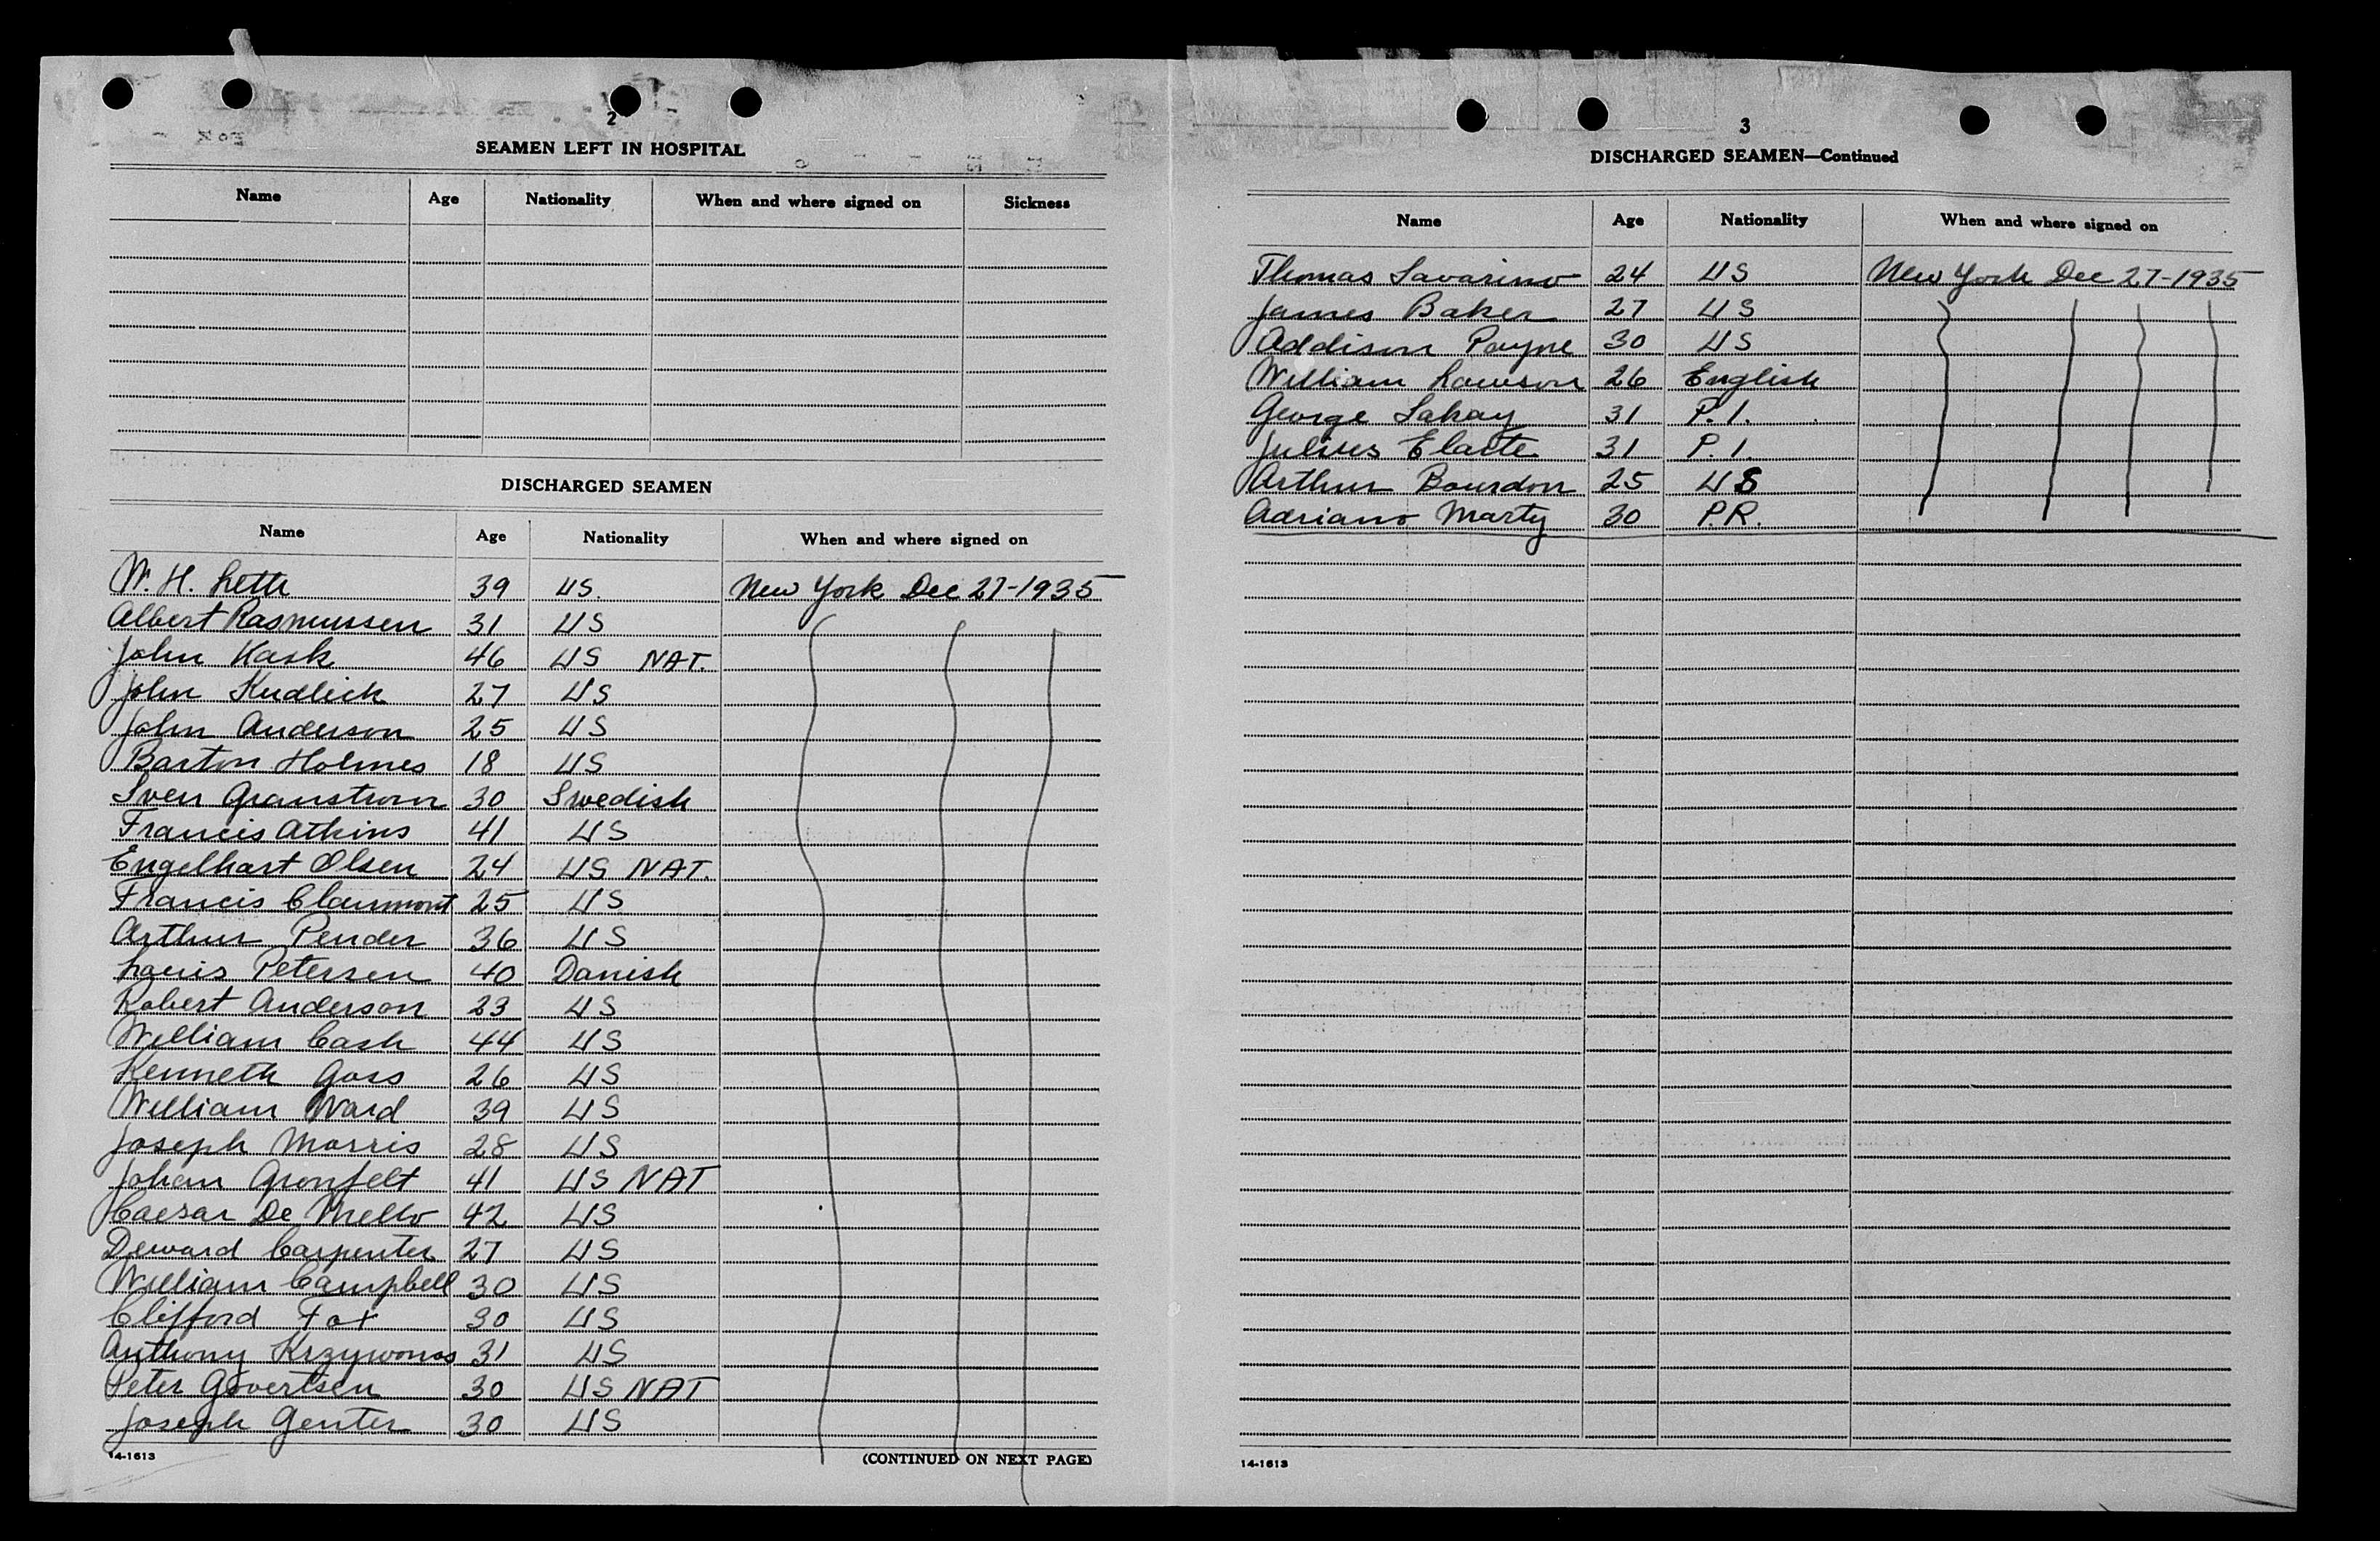 2
SEAMEN LEFT IN HOSPITAL
Name Age Nationality When and where signed on Sickness
DISCHARGED SEAMEN
Name Age Nationality When and where signed on
W. H. Leth 39 US. New York Dec 27-1935
Albert Rasmussen 31 US
John Kask 46 US NAT.
John Kudlick 27 US
John Anderson 25 US
Barton Holmes 18 US
Sven Granstrom 30 Swedish
Francis Atkins 41 US
Engelhart Olsen 24 US NAT.
Francis Clairmont 25 US
Arthur Pender 36 US
Louis Petersen 40 Danish
Robert Anderson 23 US
William Cash 44 US
Kenneth Goss 26 US
William Ward 39 US
Joseph Morris 28 US
Johan Gronfelt 41 US NAT
Caesar De Mello 42 US
Deward Carpenter 27 US
William Campbell 30 US
Clifford Fox 30 US
Anthony Krzywonos 31 US
Peter Govertsen 30 US NAT
Joseph Genter 30 US
14-1613 (CONTINUED ON NEXT PAGE)
3
DISCHARGED SEAMEN—Continued
Name Age Nationality When and where signed on
Thomas Savarino 24 US New York Dec 27-1935
James Baker 27 US
Addison Payne 30 US
William Lawson 26 English
George 31 P.I.
Julius 31 P.I.
Arthur Bourdon 25 US
Adriano Marty 30 P.R.
14-1613